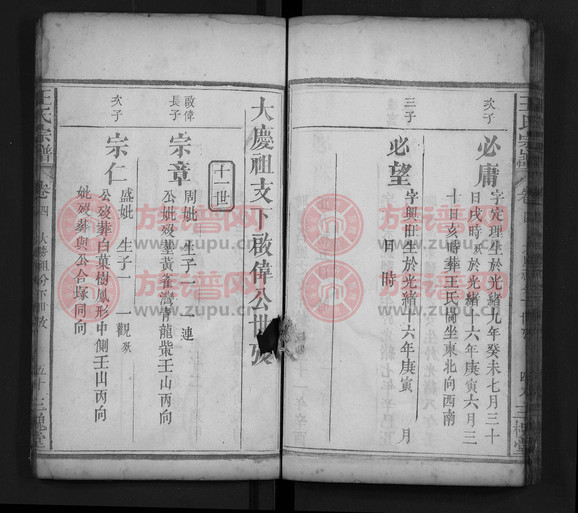 王氏宗譜
次子
必庸
字定理生於光緒九年癸未七月三十
日戌時歿於光緒十六年庚寅六月三
十日亥時葬王氏祠坐東北向西南
三子
必望
字興旺生於光緒十六年庚寅 月
日 時
大慶祖支下啟偉公世
十一世
啟偉
長子
宗章
周妣 生子一 連
公妣歿葬黃雀灣青龍嘴壬山丙向
次子
宗仁
盛妣 生子一 一觀歿
公歿葬白菓樹鳳形中側壬山丙向
妣歿葬與公合塚同向
王氏宗譜
卷四
五十
三槐堂
族谱网
www.zupu.cn